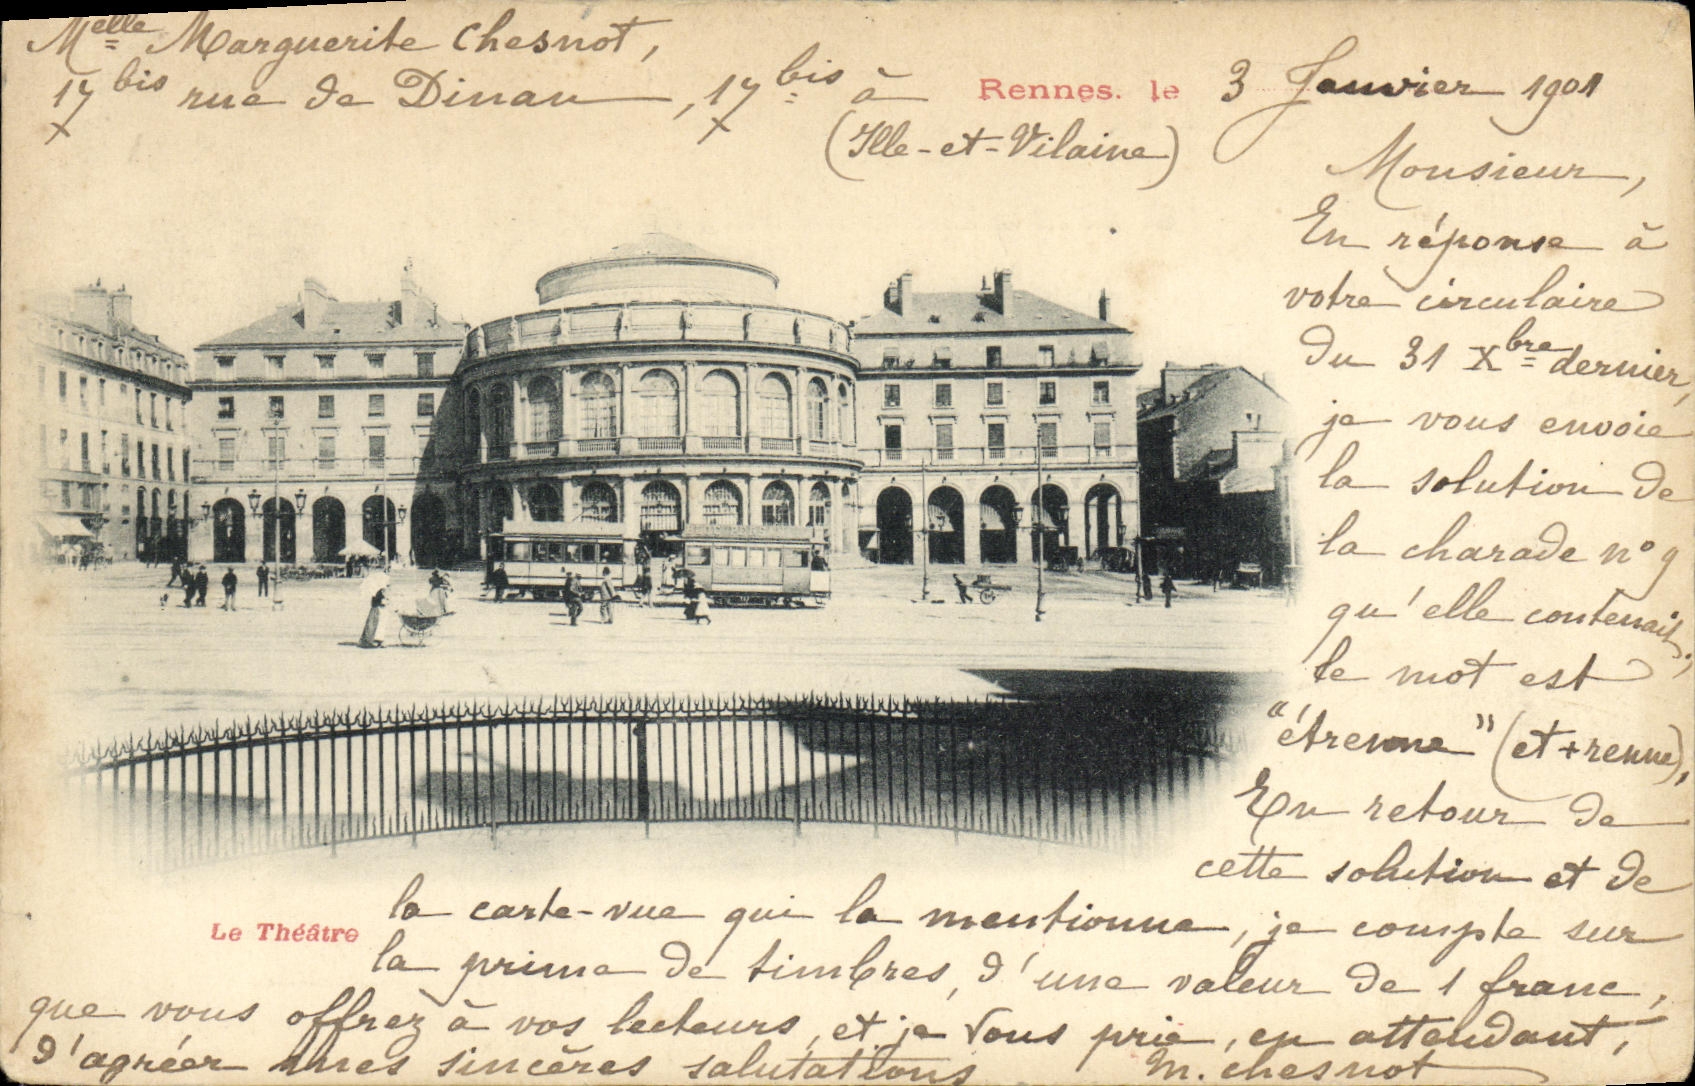 Melle Marguerite Chesnot,
17 bis rue de Dinan, 17 bis à Rennes. le 3 Janvier 1901
(Ille-et-Vilaine)
Monsieur,
En réponse à
votre circulaire
du 31 Xbre dernier,
je vous envoie
la solution de
la charade n° 9
qu'elle contenait;
le mot est
"étrenne" (et + renne),
En retour de
cette solution et de
la carte-vue qui la mentionne, je compte sur
Le Théâtre
la prime de timbres, d'une valeur de 1 franc,
que vous offrez à vos lecteurs, et je vous prie, en attendant,
d'agréer mes sincères salutations M. Chesnot